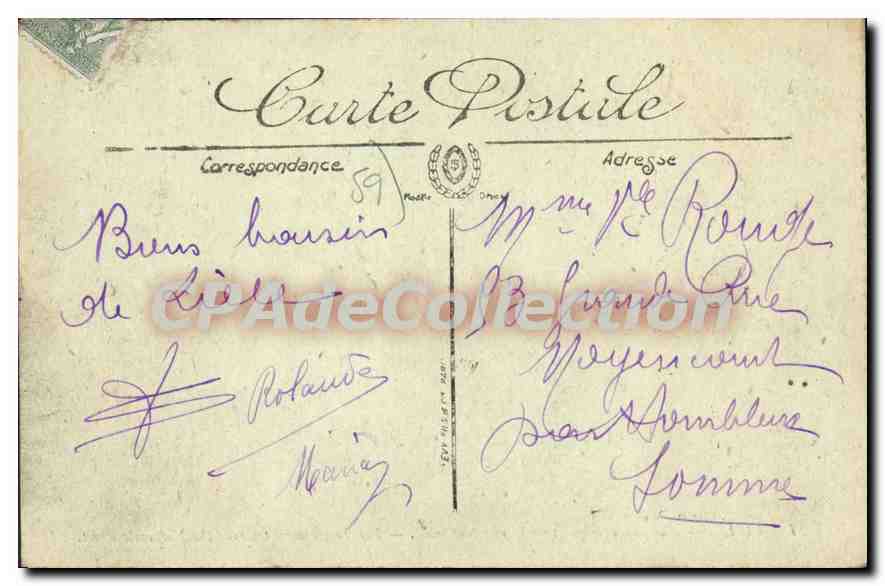 Carte Postale
Correspondance
Adresse
59
Modèle
Biens baisers
de Lille
Rolande
Maria
Mme Vve Rouge
53 Grande Rue
Moyencourt
par Hombleux
Somme
CPAdeCollection